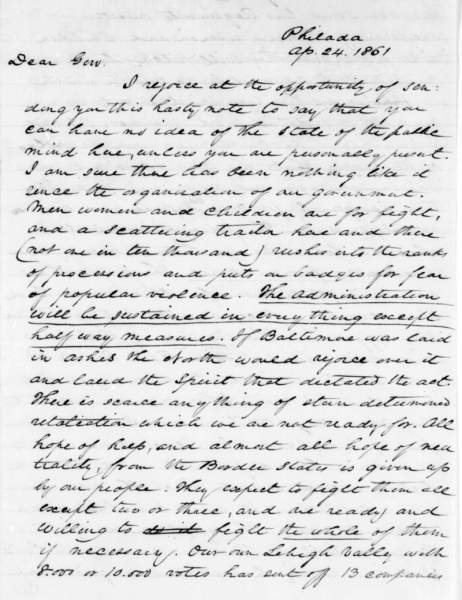 Philada
Ap. 24. 1861
Dear Gov.
I rejoice at the opportunity of sen-
ding you this hasty note to say that you
can have no idea of the state of the public
mind here, unless you are personally present.
I am sure there has been nothing like it
since the organization of our government.
Men women and children are for fight,
and a scattering traitor here and there
(not one in ten thousand) rushes into the ranks
of processions and puts on badges for fear
of popular violence. The Administration
will be sustained in everything except
half way measures. If Baltimore was laid
in ashes the North would rejoice over it
and laud the Spirit that dictated the act.
There is scarce anything of stern determined
retaliation which we are not ready for. All
hope of help, and almost all hope of neu
trality, from the Border States is given up
by our people. They expect to fight them all
except two or three, and are ready and
willing to fight the whole of them
if necessary. Our own Lehigh Vally with
8.000 or 10.000 votes has sent off 13 companies